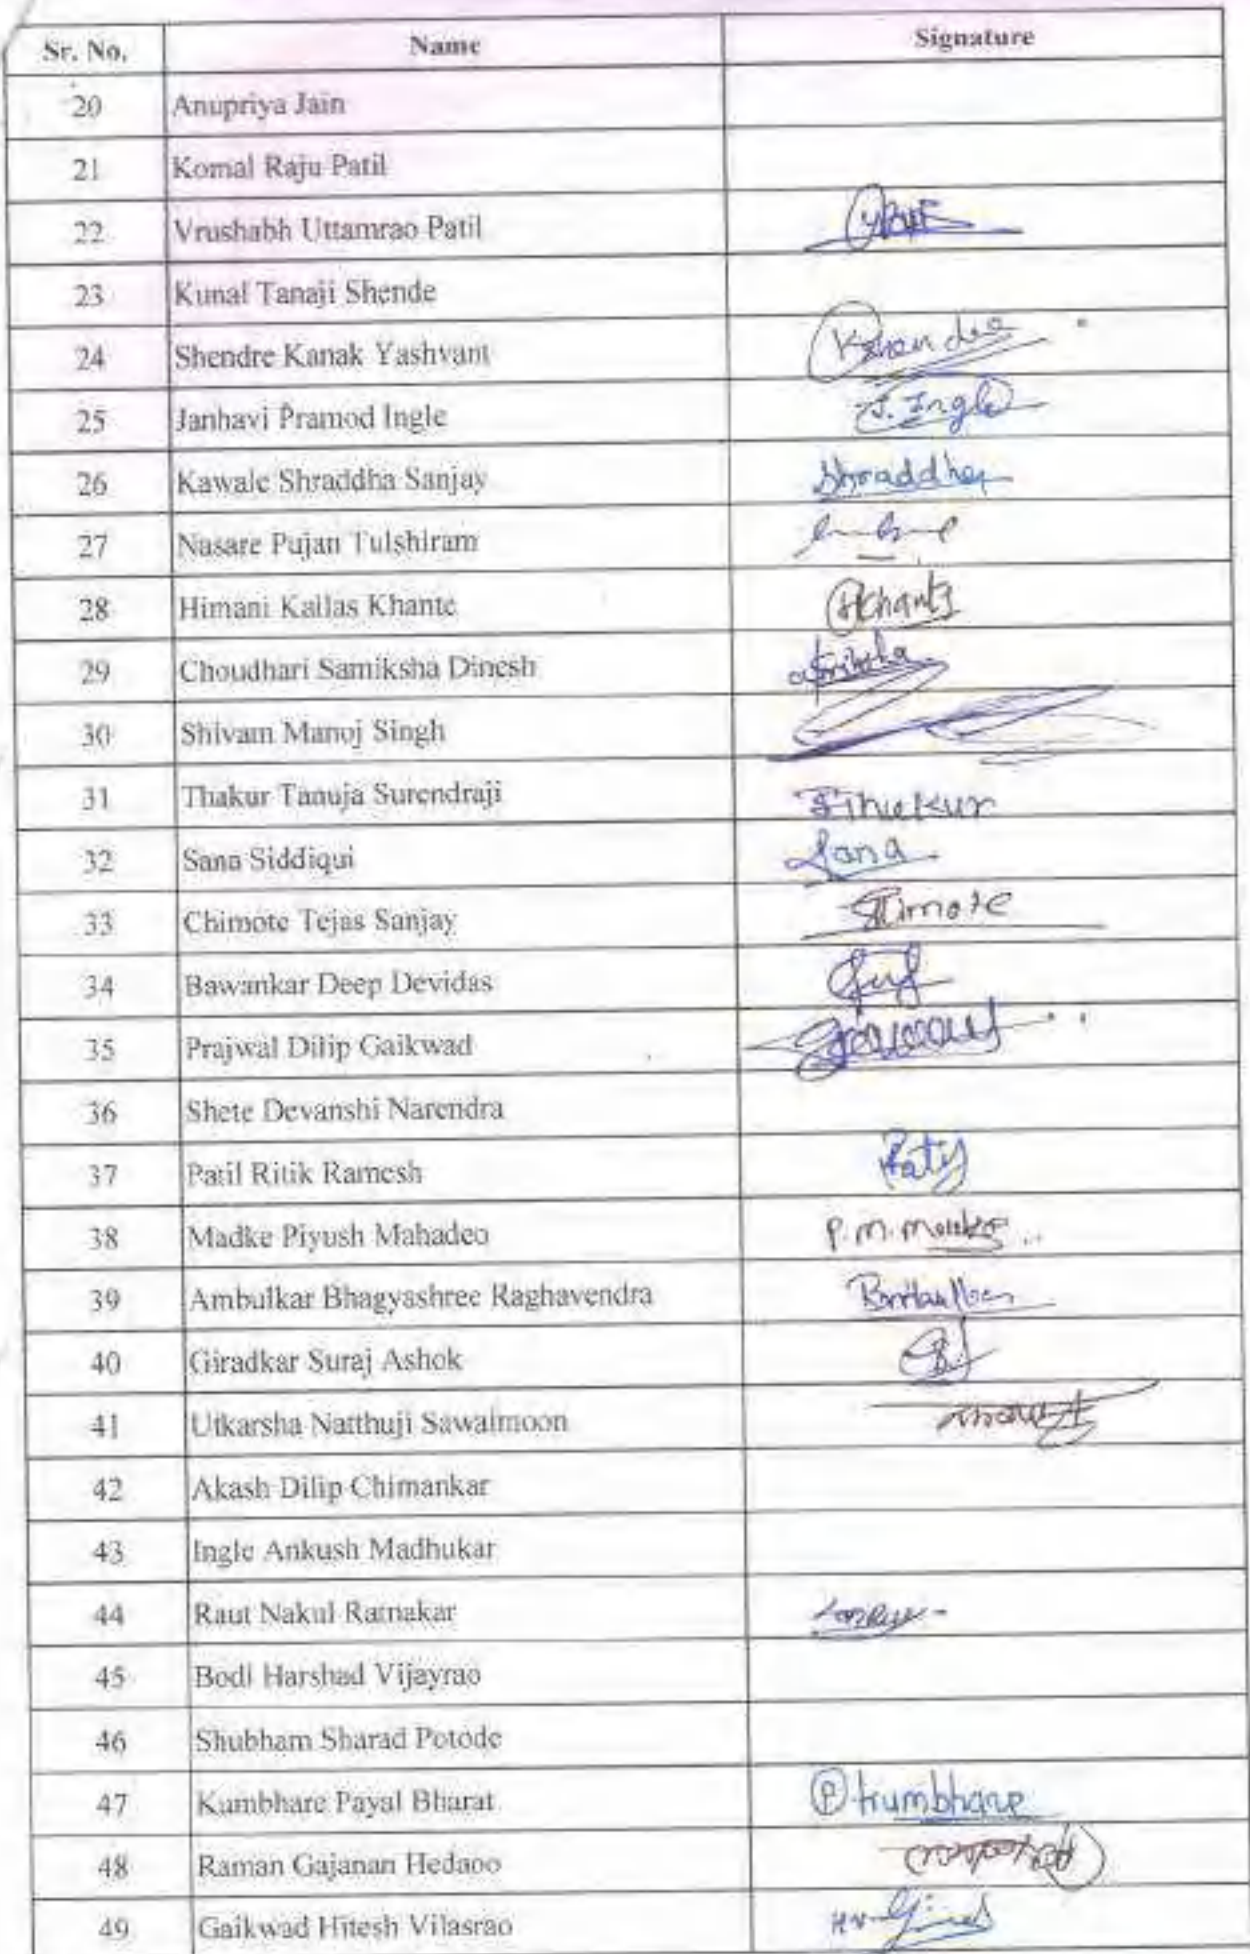 Sr. No. Name Signature
20 Anupriya Jain
21 Komal Raju Patil
22 Vrushabh Uttamrao Patil
23 Kunal Tanaji Shende
24 Shendre Kanak Yashvant
25 Janhavi Pramod Ingle J. Ingle
26 Kawale Shraddha Sanjay Shraddha
27 Nasare Pujan Tulshiram
28 Himani Kailas Khante
29 Choudhari Samiksha Dinesh
30 Shivam Manoj Singh
31 Thakur Tanuja Surendraji
32 Sana Siddiqui Sana
33 Chimote Tejas Sanjay
34 Bawankar Deep Devidas
35 Prajwal Dilip Gaikwad
36 Shete Devanshi Narendra
37 Patil Ritik Ramesh
38 Madke Piyush Mahadeo P.M.
39 Ambulkar Bhagyashree Raghavendra
40 Giradkar Suraj Ashok
41 Utkarsha Natthuji Sawalmoon
42 Akash Dilip Chimankar
43 Ingle Ankush Madhukar
44 Raut Nakul Ratnakar
45 Bodi Harshad Vijayrao
46 Shubham Sharad Potode
47 Kumbhare Payal Bharat P kumbhare
48 Raman Gajanan Hedaoo
49 Gaikwad Hitesh Vilasrao